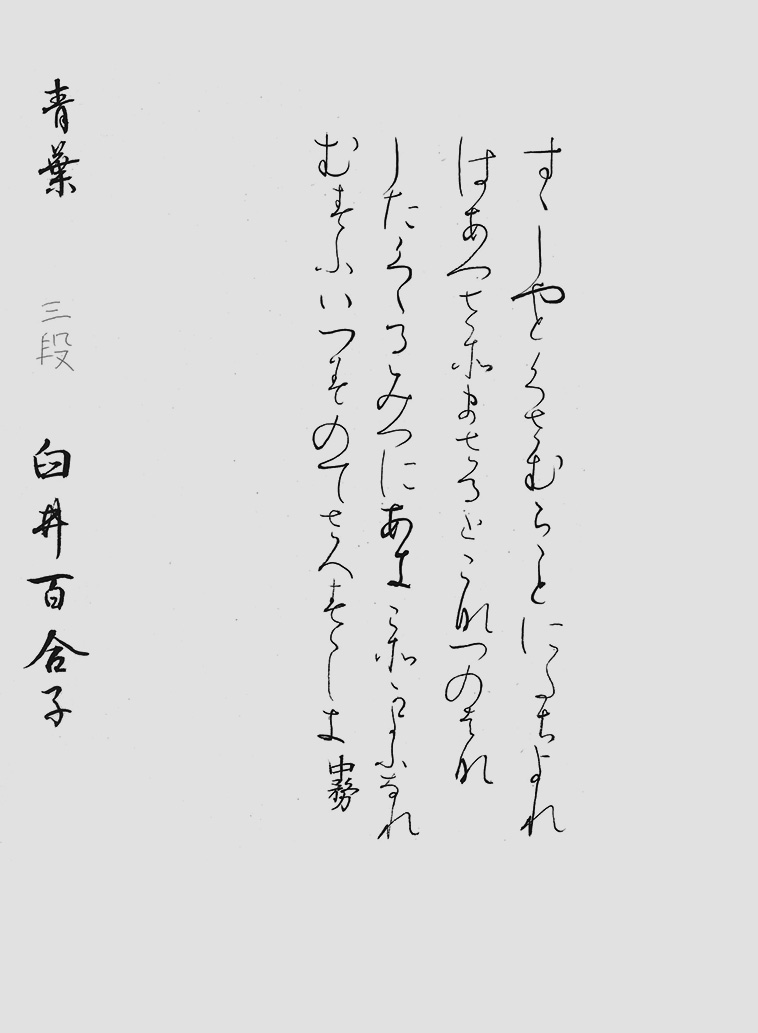 すゝしやとくさむらことにたちよれ
はあつさそまさるとこなつのはな
したくゝるみつにあきこそかよふなれ
むすふいつみのてさへすゝしき 中務
青葉 三段 臼井百合子